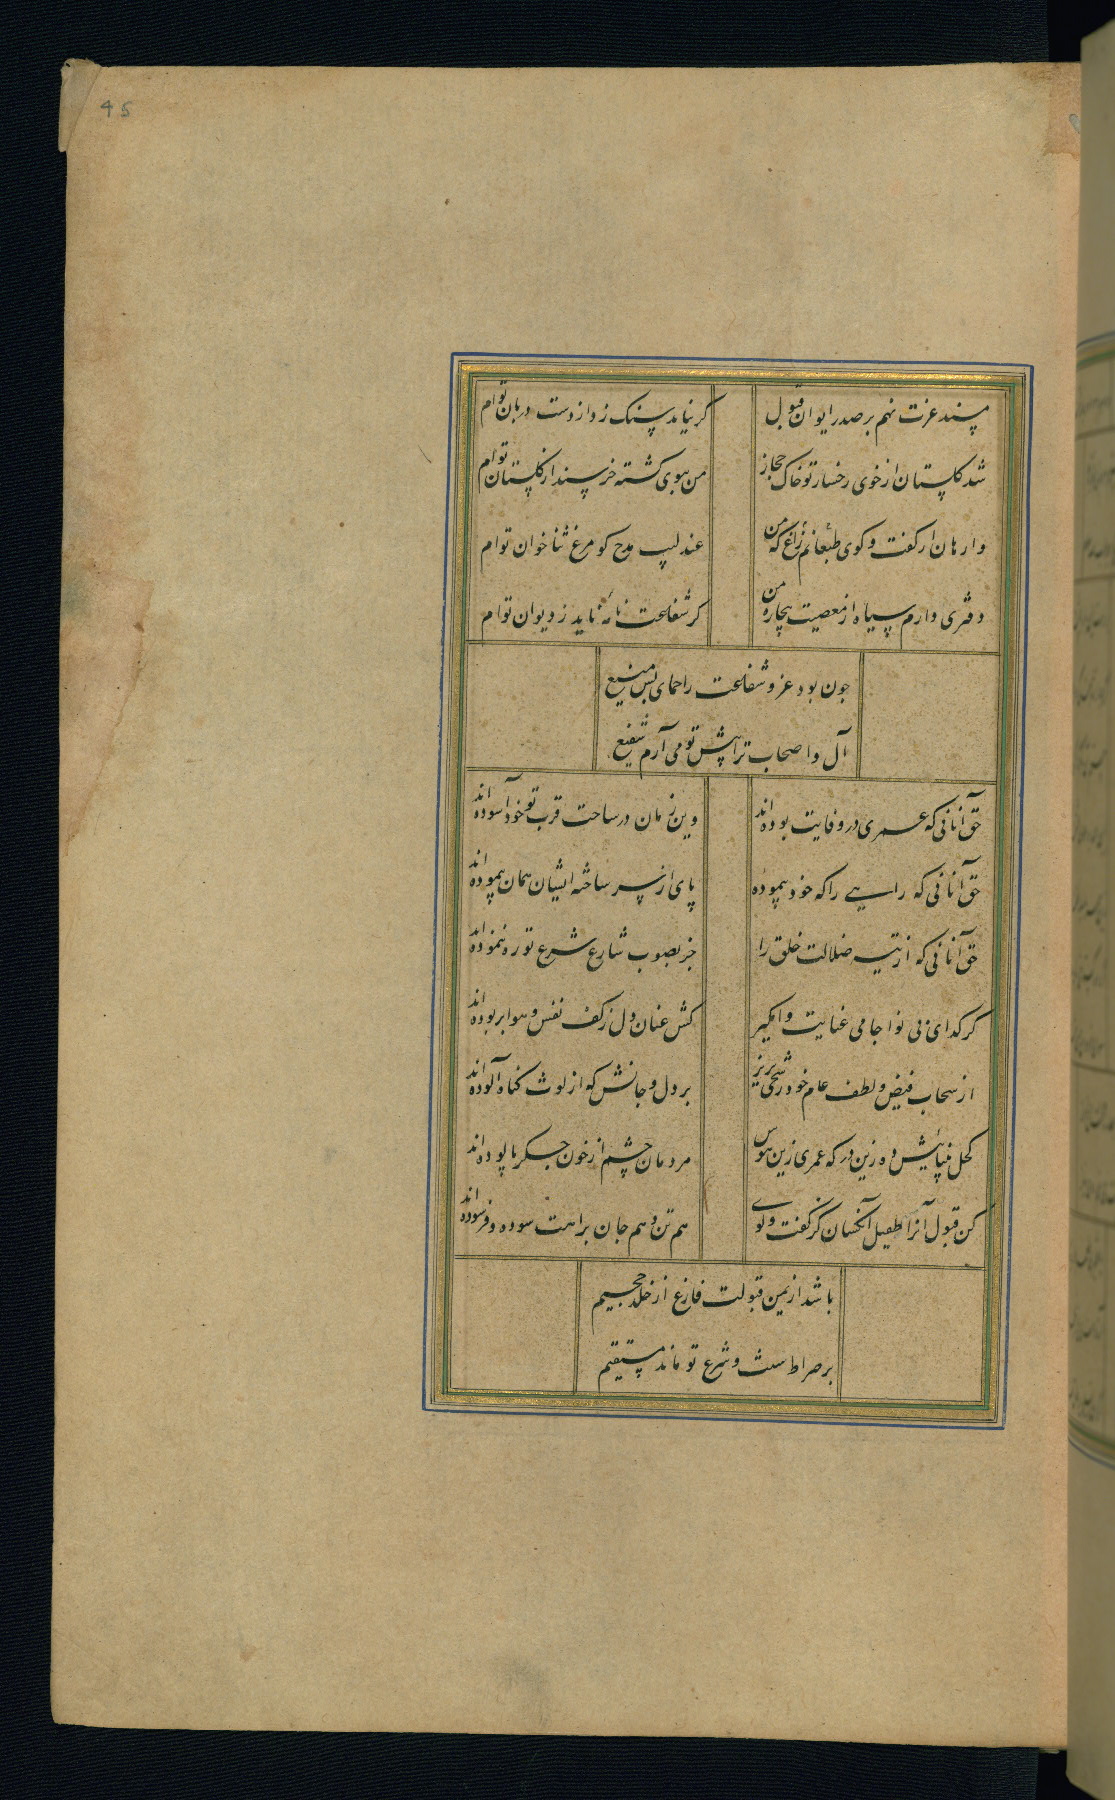 45
مسند عزت نهم بر صدر ایوان قبول
کر نیاید سنک رد از دست دربان توام
شد کلستان از خوی رخسار تو خاک حجاز
من ببوی کشته خرسند از کلستان توام
وارهان از کفت و کوی طبعانم زاغ که من
عندلیب مدح کو مرغ ثنا خوان توام
دفتری دارم سیاه از معصیت بیچاره من
کر شفاعت نامه ناید ز دیوان توام
چون بود عز و شفاعت را حمای بس منیع
آل و اصحاب ترا پیش تو می آرم شفیع
حق آنانی که عمری در وفایت بوده اند
وین زمان در ساحت قرب تو خود آسوده اند
حق آنانی که راهی را که خود پیموده
پای از سر ساخته ایشان همان پیموده اند
حق آنانی که از تیه ضلالت خلق را
جز بصوب شارع شرع تو ره ننموده اند
کر کدای بی نوا جامی عنایت وامکیر
کش عنان دل ز کف نفس و هوا بربوده اند
از سحاب فیض و لطف عام خود رشحی بریز
بر دل و جانش که از لوث کناه آلوده اند
کحل بیناییش ده زین در که عمری زین هوس
مردمان چشم از خون جکر پالوده اند
کن قبول آنرا طفیل آنکسان کز کفت و کوی
هم تن و هم جان براهت سوده و فرسوده اند
باشد از یمن قبولت فارغ از خلد و جحیم
بر صراط سنت و شرع تو ماند مستقیم